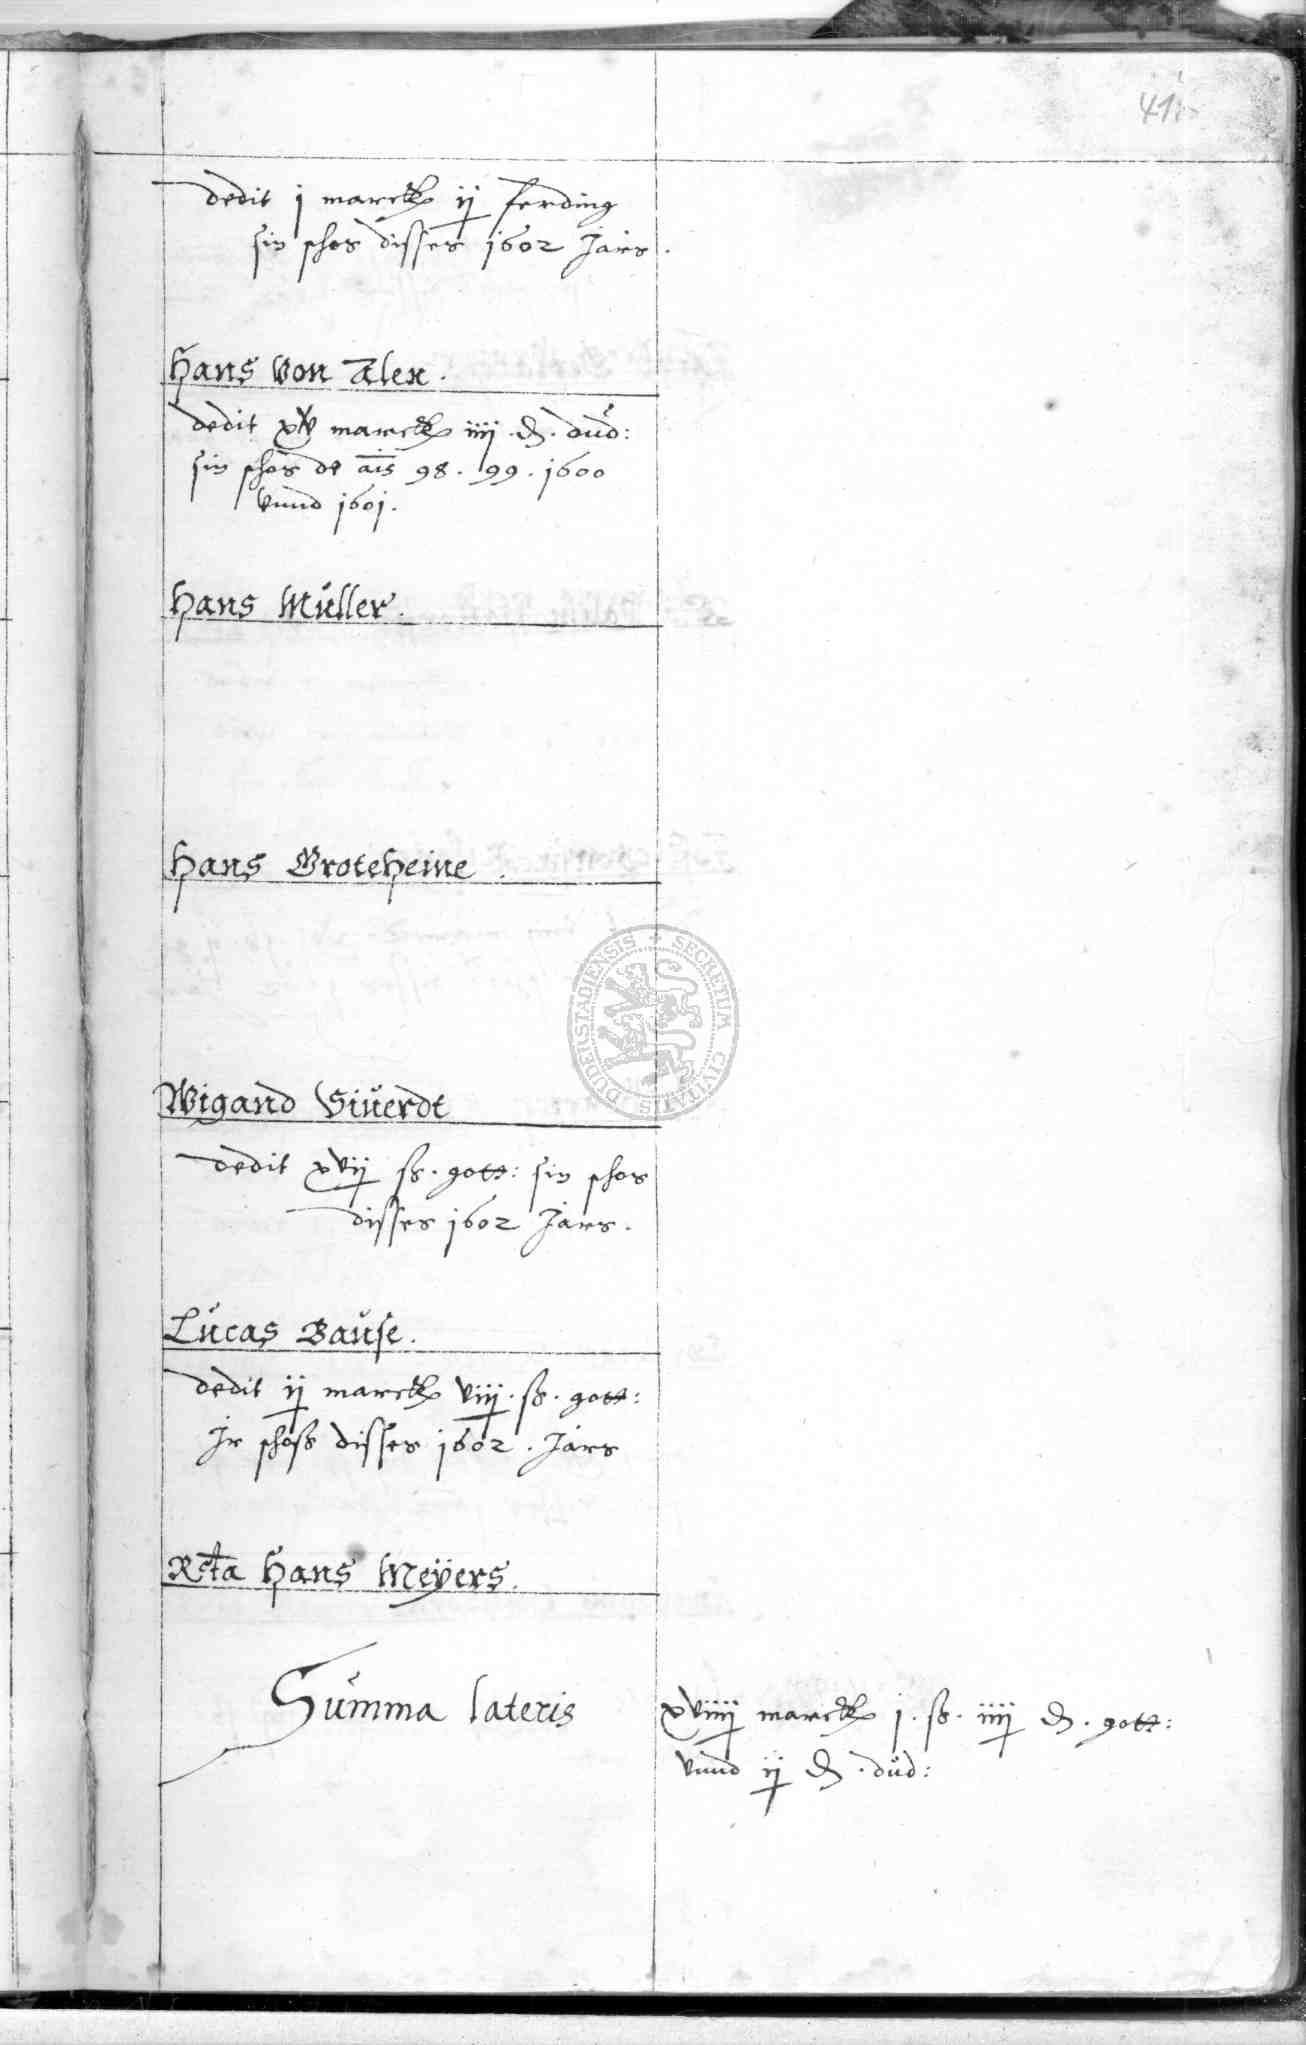 41.
dedit j marck ij ferding
sin schos disses 1602 Jars.
Hans Von Alen.
dedit xv marck iiij. d. dud:
sin schos de ais 98. 99. 1600
vnnd 1601.
Hans Müller.
Hans Groteheine.
Wigand Siuerdt
dedit xvij ß. gott: sin schos
disses 1602 Jars.
Lucas Bause.
dedit ij marck viij. ß. gott:
Jr schoß disses 1602. Jars
Rcta Hans Meÿers.
Summa lateris
xviiij marck j. ß. iiij d. gott:
vnnd ij d. dud:
SECRETUM CIVITATIS DUDERSTADIENSIS